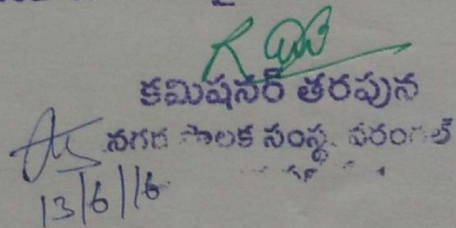 కమిషనర్ తరపున
నగర పాలక సంస్థ, వరంగల్
13/6/16